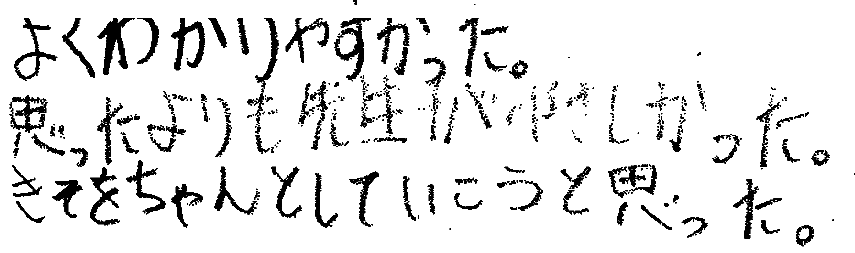 よくわかりやすかった。
思ったよりも先生がやさしかった。
きそをちゃんとしていこうと思った。